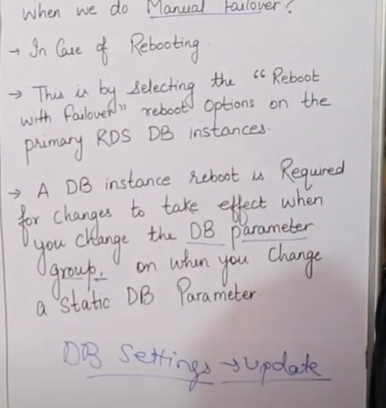 When we do Manual Failover?
→ In Case of Rebooting.
→ This is by selecting the "Reboot
with Failover" reboot Options on the
primary RDS DB instances.
→ A DB instance reboot is Required
for changes to take effect when
you change the DB parameter
group, on when you change
a Static DB Parameter
DB Settings → Update